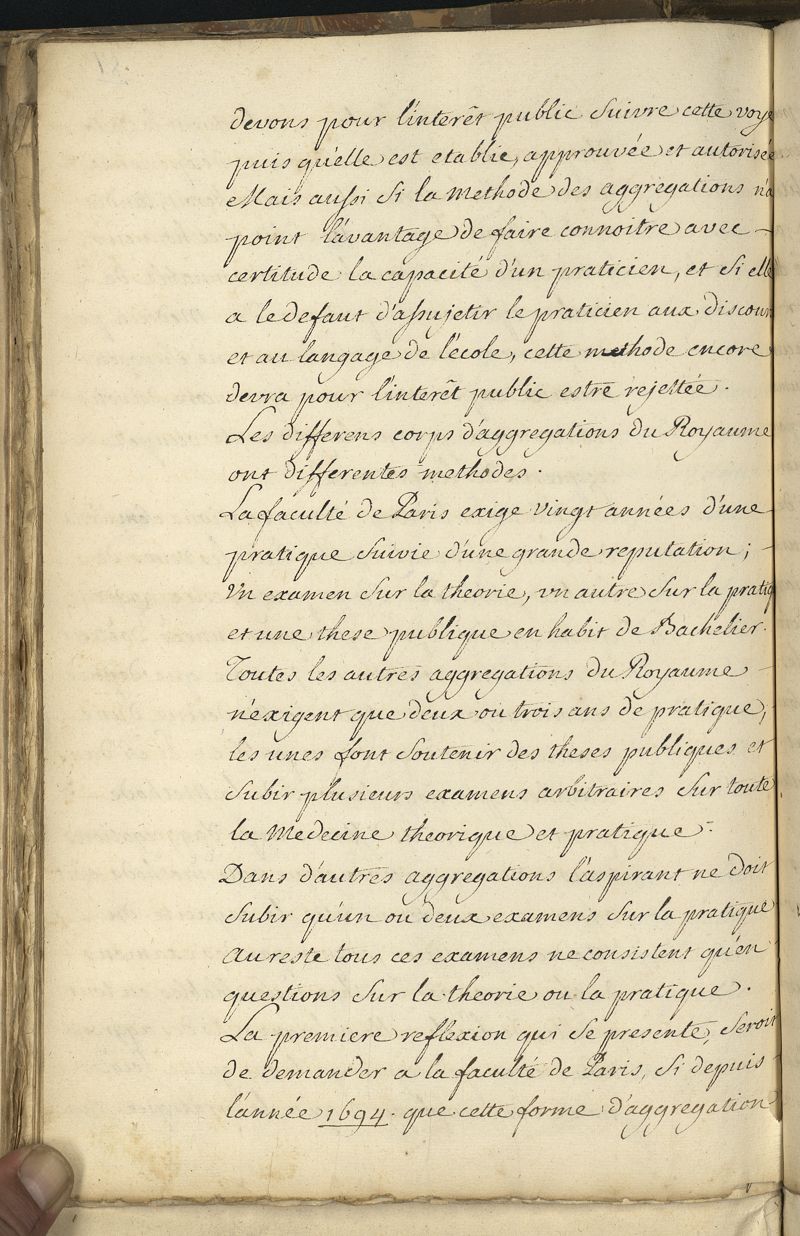 devons pour l'interêt public suivre cette voye
puis qu'elle est etablie, approuvée et autorisée
Mais aussi si la methode des aggregations n'a
point l'avantage de faire connoitre avec
certitude la capacité d'un praticien, et si elle
a le defaut d'assujetir le praticien aux discours
et au langage de l'école, cette methode encore
devra pour l'interêt public estre rejettée.
Les differens corps d'aggregations du Royaume
ont differentes methodes.
La faculté de Paris exige vingt années d'une
pratique suivie d'une grande reputation;
Vn examen sur la theorie, vn autre sur la pratiq
et une these publique en habit de Bachelier.
Toutes les autres aggregations du Royaume
n'exigent que deux ou trois ans de pratique,
les unes font soutenir des theses publiques et
subir plusieurs examens arbitraires sur toute
la Medecine theorique et pratique.
Dans d'autres aggregations l'aspirant ne doit
subir qu'un ou deux examens sur la pratique
au reste tous ces examens ne consistent qu'en
questions sur la theorie ou la pratique.
La premiere reflexion qui se presente, seroit
de demander a la faculté de Paris, si depuis
l'année 1694. que cette forme d'aggregation